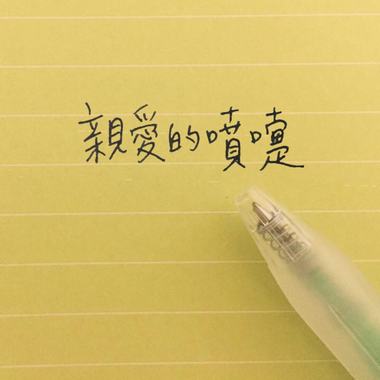 親愛的噴嚏